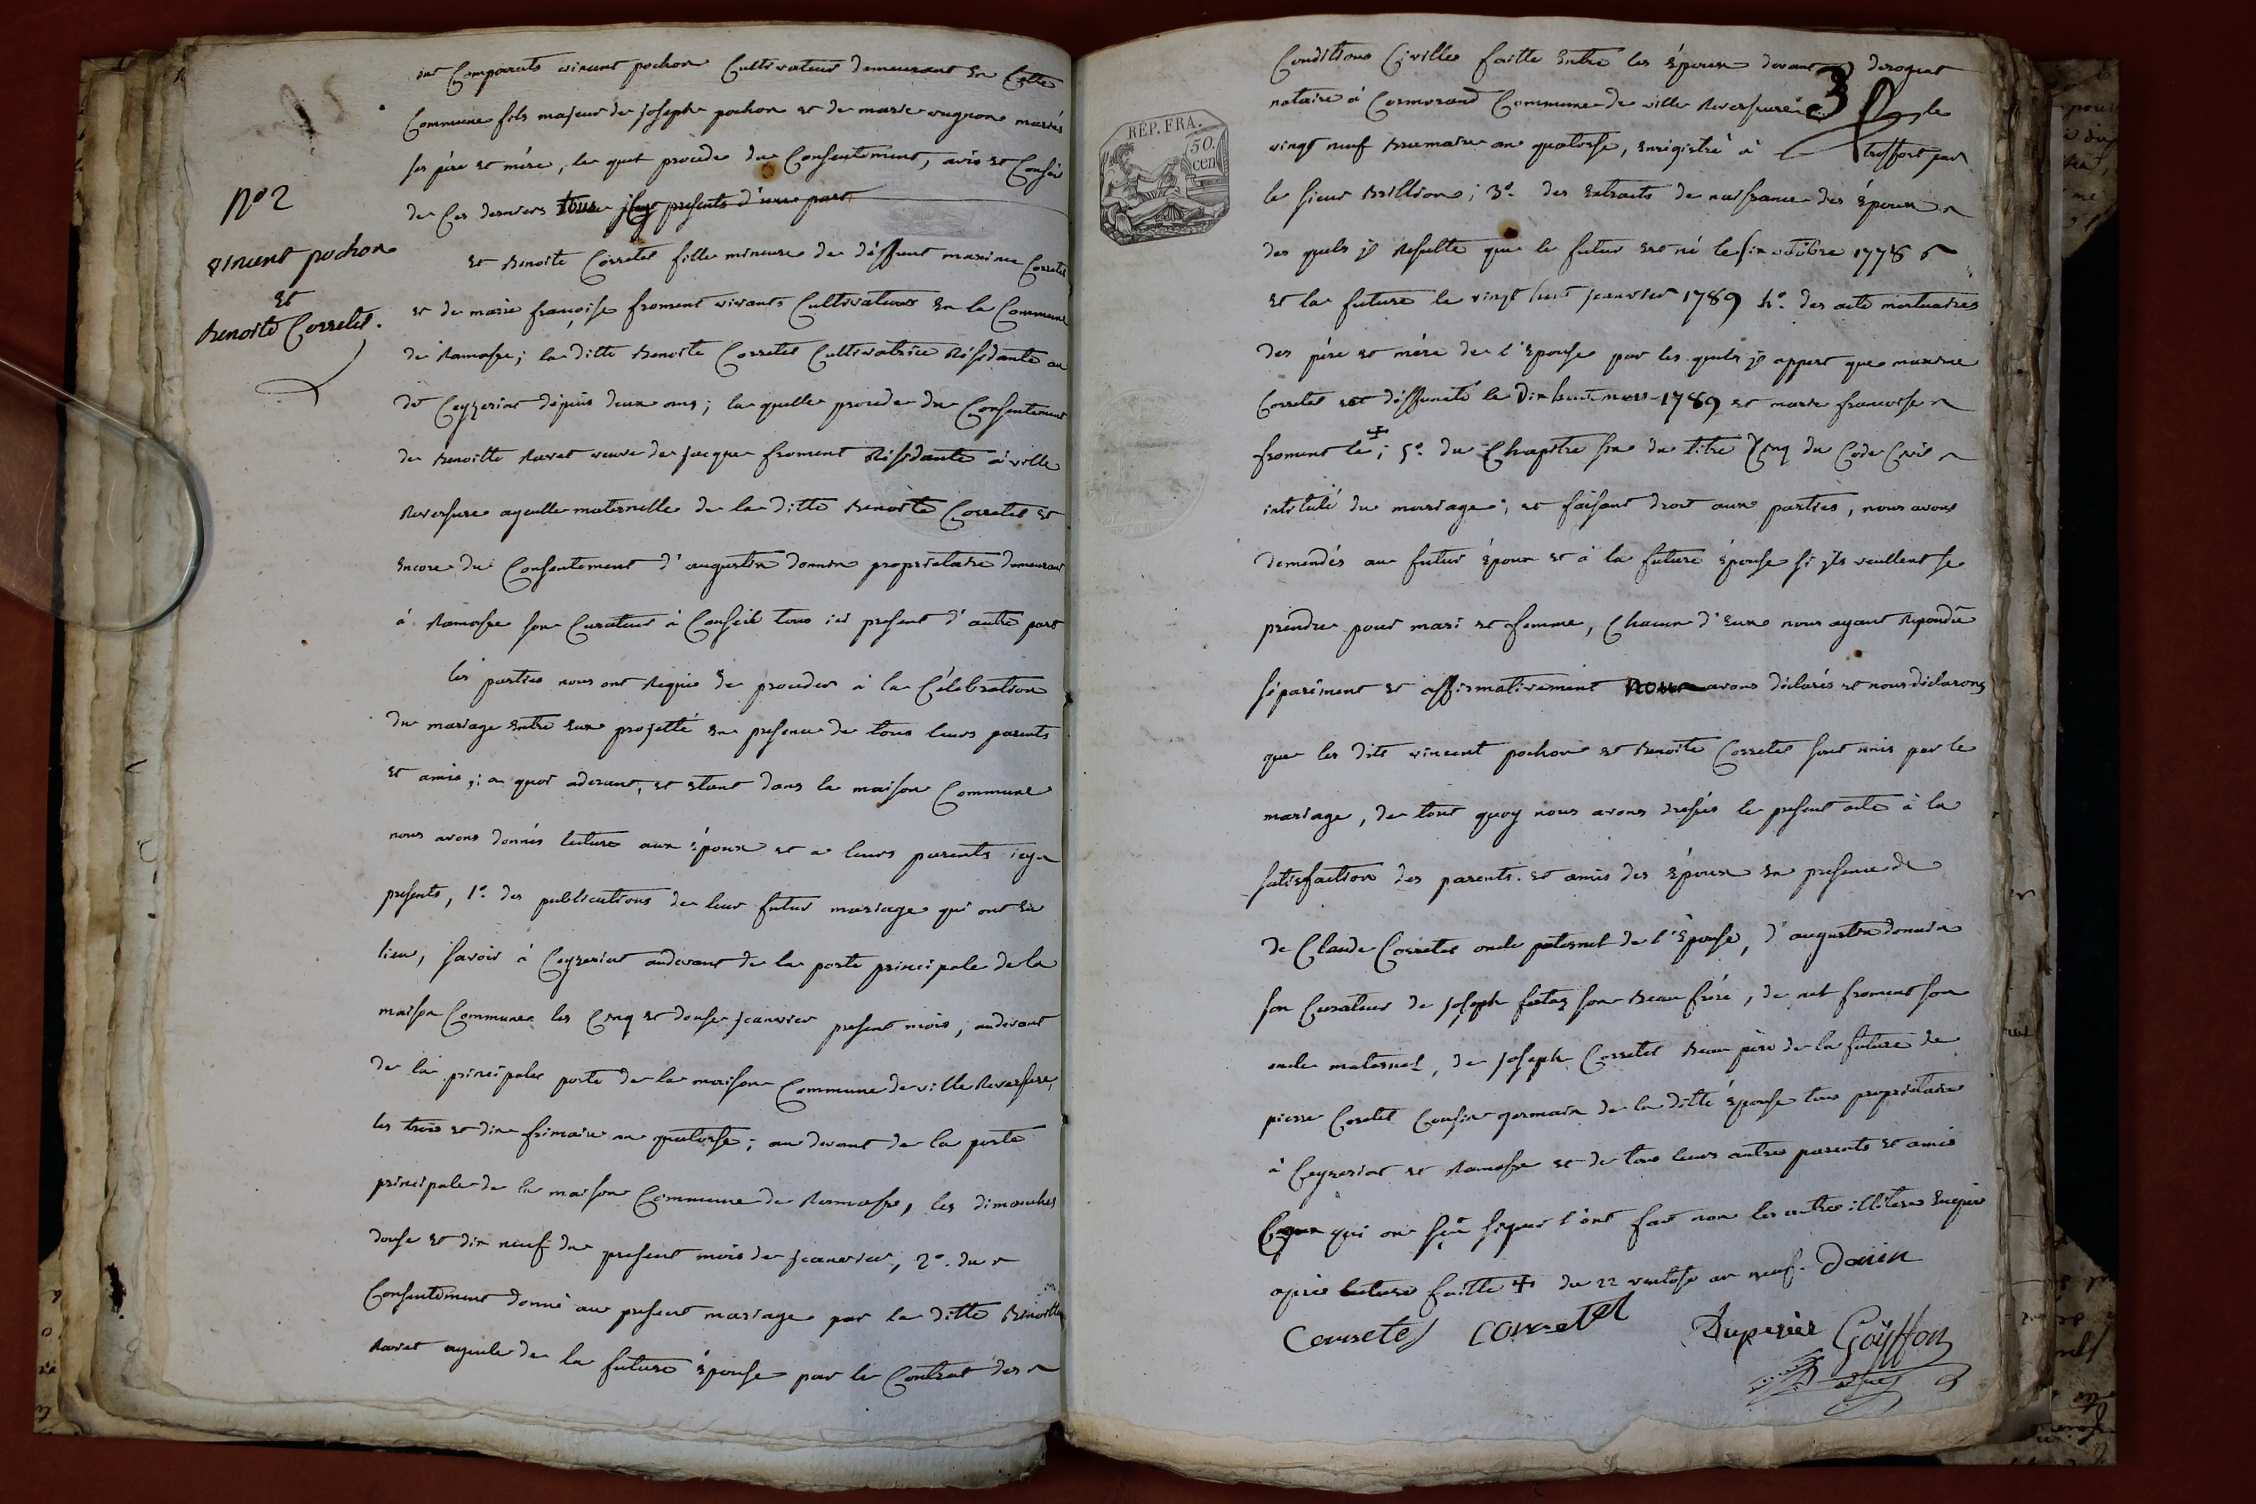 ont Comparuts vincent pochon Cultivateur demeurant en Cette
Commune fils majeur de joseph pochon et de marie vugnon mariés
ses père et mére, le quel procede du Consentement, avis et Conseil
de Ces derniers tous icy presents d'une part,
N° 2
vincent pochon
et
Benoite Corretel.
et Benoite Corretel fille mineure de déffunt maxime Corretel
et de marie françoise froment vivants Cultivateurs en la Commune
de Ramasse; la ditte Benoite Corretel Cultivatrice Résidante au
dit Ceyzeriat dépuis deux ans; la quelle procede du Consentement
de Benoitte Ravet veuve de jacque froment Résidante à ville
Reversure ayeulle maternelle de la ditte Benoite Corretel et
encore du Consentement d'augustin donnin proprietaire demeurant
á Ramasse son Curateur à Conseil tous ici present d'autre part
les parties nous ont Requis de proceder à la Célébration
du mariage entre eux projetté en presence de tous leurs parents
et amis; a quoi aderant, et etant dans la maison Commune
nous avons donnés lecture aux époux et a leurs parents icy
presents, 1° des publications de leur futur mariage qui ont eu
lieu, savoir à Ceyzeriat audevant de la porte principale de la
maison Commune les Cinq et douse jeanvier present mois, audevant
de la principale porte de la maison Commune de ville Reversure,
les trois et dix frimaire an quatorse; au devant de la porte
principale de la maison Commune de Ramasse, les dimanches
douse et dix neuf du present mois de jeanvier, 2° du
Consentement donné au present mariage par la ditte Benoitte
Ravet ayeule de la future épouse par le Contrat des
REP. FRA.
50. cen
3
Conditions Civilles faitte entre les époux devant derognat
notaire à Cormorand Commune de ville Reversure le
vingt neuf Brumaire an quatorse, enrégistré à treffort par
le sieur Brillion; 3° des extraits de naissance des époux
des quels il Resulte que le futur est né le six octobre 1778
et la future le vingt huit jeanvier 1789 4° des acte mortuaires
des pére et mére de l'epouse par les quels il appert que maxime
Corretel est déffuncté le Dix huit mars 1789 et marie francoise
froment le ✝; 5° du Chapitre six du titre Cinq du Code Civil
intitulé du mariage; et faisant droit aux parties, nous avons
demandés au futur époux et à la future épouse si ils veullent se
prendre pour mari et femme, Chacun d'eux nous ayant Repondu
séparément et affirmativement nous avons déclarés et nous déclarons
que les dits vincent pochon et Benoite Corretel sont unis par le
mariage, de tout quoy nous avons dressés le present acte à la
satisfaction des parents et amis des époux en presence de
de Claude Corretel oncle paternel de l'épouse, d'augustin donnin
son Curateur de joseph son Beau frére, de froment son
oncle maternel, de joseph Corretel Beau pére de la future de
pierre Coretel Cousin germain de la ditte épouse tous proprietaire
à Ceyzeriat et Ramasse et de tous leurs autres parents et amis
Ceux qui on sçu signer l'ont fait non les autres illiteré Enquis
aprés lecture faitte ✝ du 22 ventose an neuf. Donin
Couretel Corretel Duperier Goÿffon